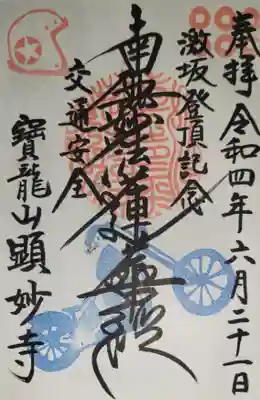 奉拝 令和四年六月二十一日
激坂登頂記念
南無妙法蓮華経
交通安全
寳龍山顕妙寺